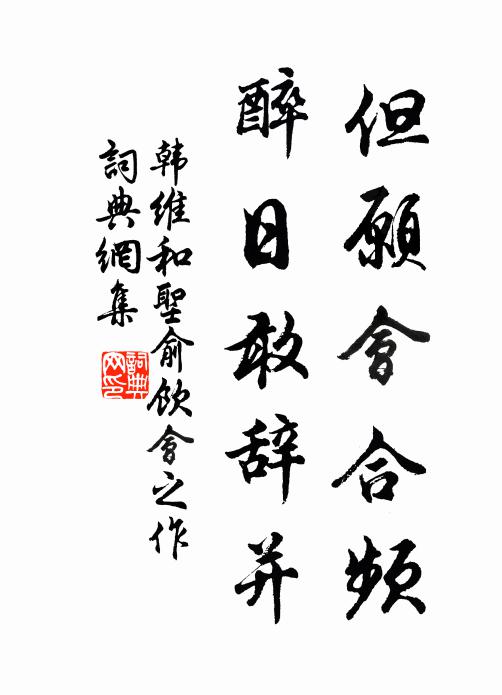 但願會合頻
醉日敢辞并
韩維和聖俞飲會之作
詞典網集
詞典
网印